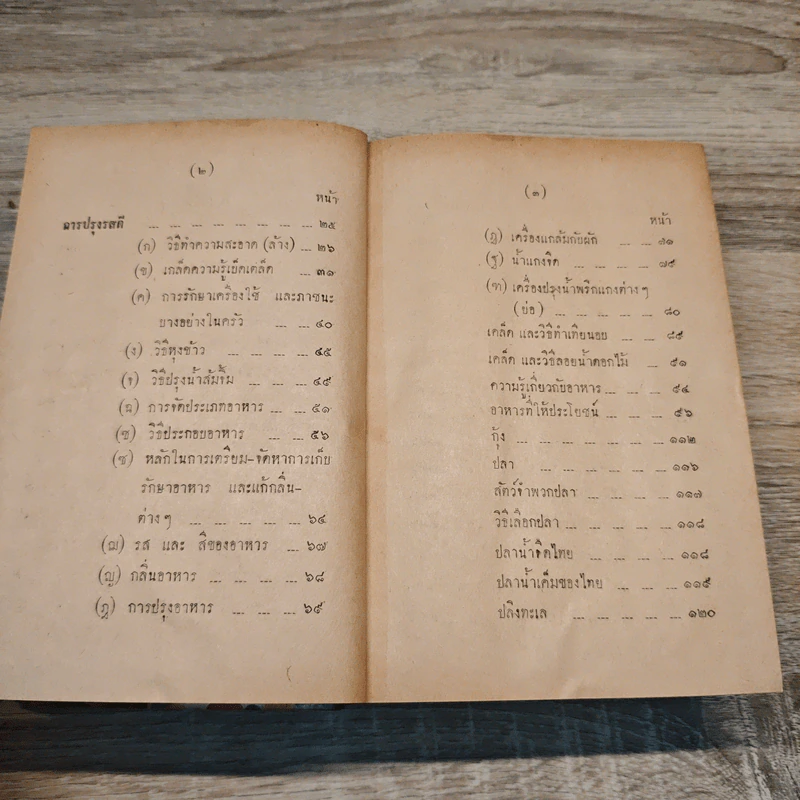 (๒)
หน้า
การปรุงรสดี _ _ _ _ _ _ _ ๒๕
(ก) วิธีทำความสะอาด (ล้าง) _ ๒๖
(ข) เกล็ดความรู้เบ็ดเตล็ด _ _ ๓๑
(ค) การรักษาเครื่องใช้ และภาชนะ
บางอย่างในครัว _ _ ๔๐
(ง) วิธีหุงข้าว _ _ _ _ ๔๕
(จ) วิธีปรุงน้ำส้มจิ้ม _ _ _ ๔๙
(ฉ) การจัดประเภทอาหาร _ _ ๕๑
(ช) วิธีประกอบอาหาร _ _ ๕๖
(ซ) หลักในการเตรียม-จัดหาการเก็บ
รักษาอาหาร และแก้กลิ่น-
ต่างๆ _ _ _ _ _ ๖๔
(ฌ) รส และ สีของอาหาร _ ๖๗
(ญ) กลิ่นอาหาร _ _ _ _ ๖๘
(ฎ) การปรุงอาหาร _ _ _ ๖๙
(๓)
หน้า
(ฏ) เครื่องแกล้มกับผัก _ _ ๗๑
(ฐ) น้ำแกงจืด _ _ _ _ ๗๙
(ฑ) เครื่องปรุงน้ำพริกแกงต่างๆ
(ย่อ) _ _ _ _ _ ๘๐
เคล็ด และวิธีทำเทียนอบ _ _ ๘๙
เคล็ด และวิธีลอยน้ำดอกไม้ _ ๙๑
ความรู้เกี่ยวกับอาหาร _ _ _ ๙๔
อาหารที่ให้ประโยชน์ _ _ _ ๙๖
กุ้ง _ _ _ _ _ _ _ ๑๑๒
ปลา _ _ _ _ _ _ ๑๑๖
สัตว์จำพวกปลา _ _ _ _ ๑๑๗
วิธีเลือกปลา _ _ _ _ _ ๑๑๘
ปลาน้ำจืดไทย _ _ _ _ ๑๑๘
ปลาน้ำเค็มของไทย _ _ _ ๑๑๙
ปลิงทะเล _ _ _ _ _ ๑๒๐